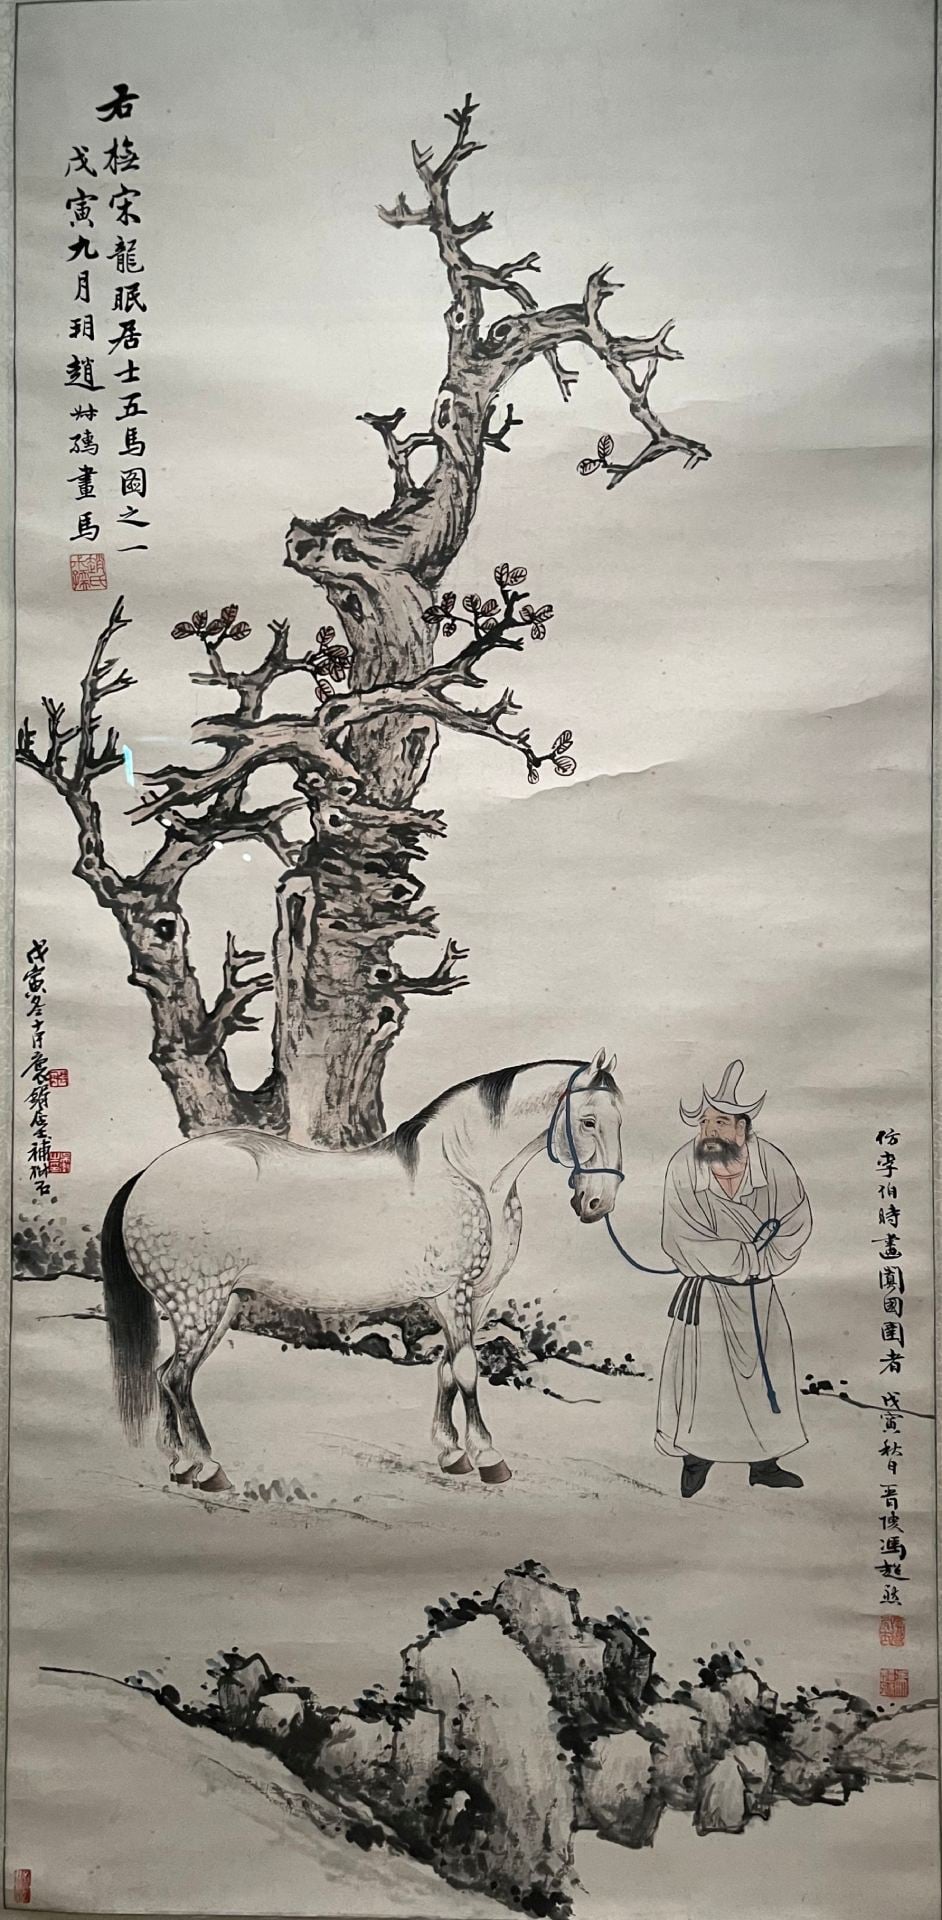 右橅宋龍眠居士五馬圖之一
戊寅九月玥趙尗孺畫馬
仿李伯時畫闐國圉者
戊寅秋日晋陵馮超然
戊寅冬十月 補樹石